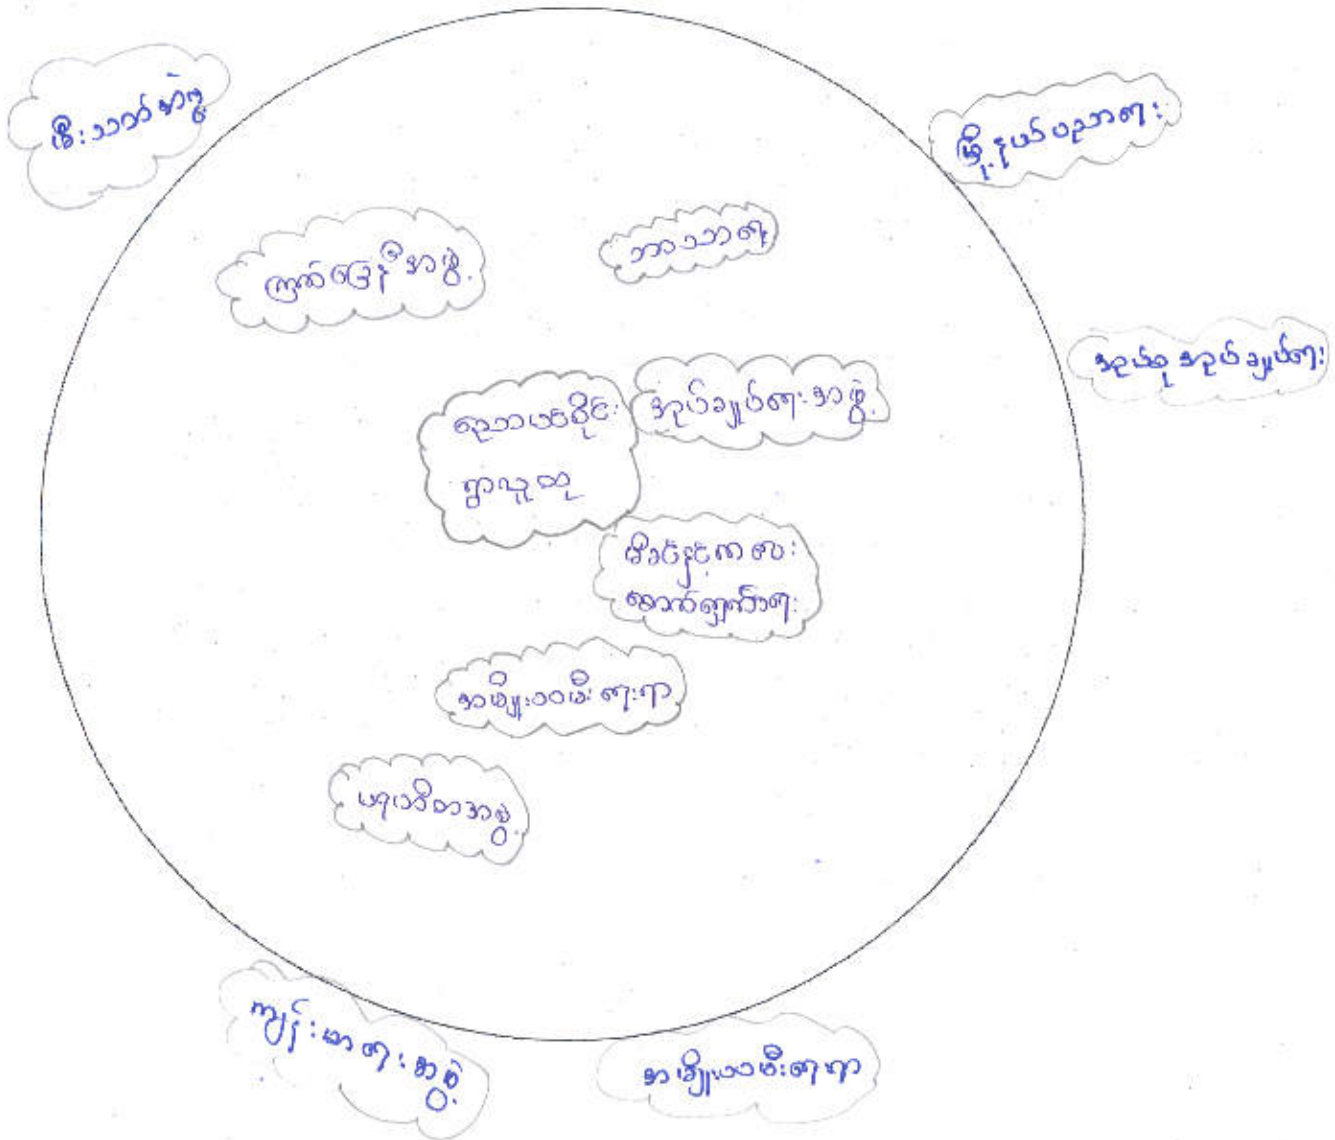 မီးသတ်အဖွဲ့
မြို့နယ်ပညာရေး
ကြက်ခြေနီအဖွဲ့
ဘာသာရေး
အုပ်စုအုပ်ချုပ်ရေး
အုပ်ချုပ်ရေးအဖွဲ့
ရွာလူထု
မိခင်နှင့်ကလေး
စောင့်ရှောက်ရေး
အမျိုးသမီးရေးရာ
ပရဟိတအဖွဲ့
ကျန်းမာရေးအဖွဲ့
အမျိုးသမီးရေးရာ